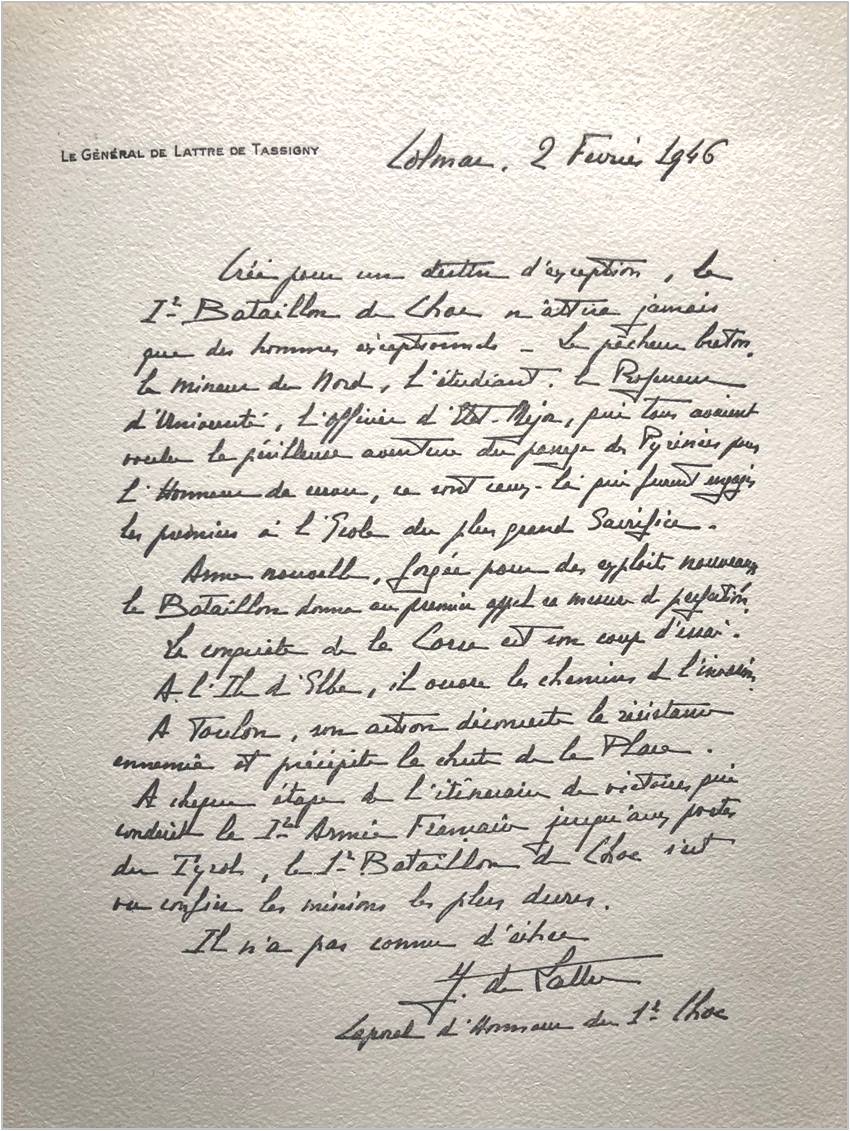 LE GÉNÉRAL DE LATTRE DE TASSIGNY
Colmar, 2 Février 1946
Créé pour un destin d'exception, le
Iᵉʳ Bataillon de Choc n'attira jamais
que des hommes exceptionnels - Le pêcheur breton,
le mineur du Nord, l'étudiant, le Professeur
d'Université, l'officier d'Etat-Major, qui tous avaient
voulu la périlleuse aventure du passage des Pyrénées pour
l'Honneur de servir, ce sont ceux-là qui furent engagés
les premiers à l'Ecole du plus grand Sacrifice.
Arme nouvelle, forgée pour des exploits nouveaux
le Bataillon donne au premier appel sa mesure de perfection.
La conquête de la Corse est son coup d'essai.
A l'Ile d'Elbe, il ouvre les chemins de l'invasion.
A Toulon, son action déconcerte la résistance
ennemie et précipite la chute de la Place.
A chaque étape de l'itinéraire de victoires qui
conduit la Iʳᵉ Armée Française jusqu'aux portes
du Tyrol, le 1ᵉʳ Bataillon de Choc s'est
vu confier les missions les plus dures.
Il n'a pas connu d'échec
J. de Lattre
Caporal d'Honneur du 1ᵉʳ Choc